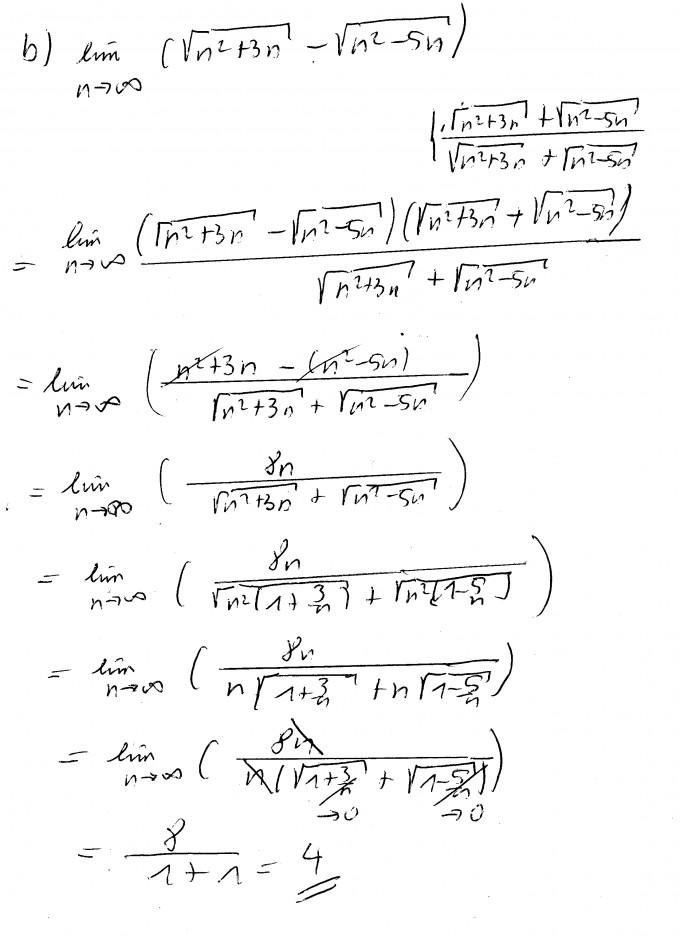 b) lim n→∞ (√(n²+3n) − √(n²−5n))
| · (√(n²+3n) + √(n²−5n)) / (√(n²+3n) + √(n²−5n))
= lim n→∞ (√(n²+3n) − √(n²−5n)) (√(n²+3n) + √(n²−5n)) / (√(n²+3n) + √(n²−5n))
= lim n→∞ ( (n²+3n − (n²−5n)) / (√(n²+3n) + √(n²−5n)) )
= lim n→∞ ( 8n / (√(n²+3n) + √(n²−5n)) )
= lim n→∞ ( 8n / (√(n²(1+3/n)) + √(n²[1−5/n])) )
= lim n→∞ ( 8n / (n√(1+3/n) + n√(1−5/n)) )
= lim n→∞ ( 8n / (n(√(1+3/n) + √(1−5/n))) )
→0 →0
= 8 / (1+1) = 4